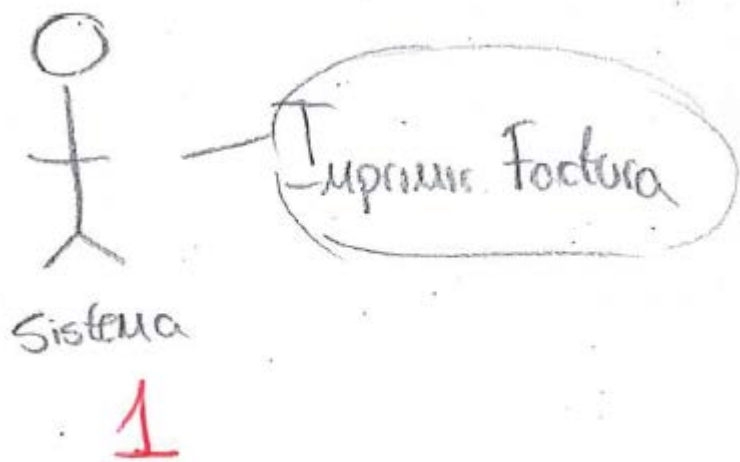 Imprimir Factura
Sistema
1